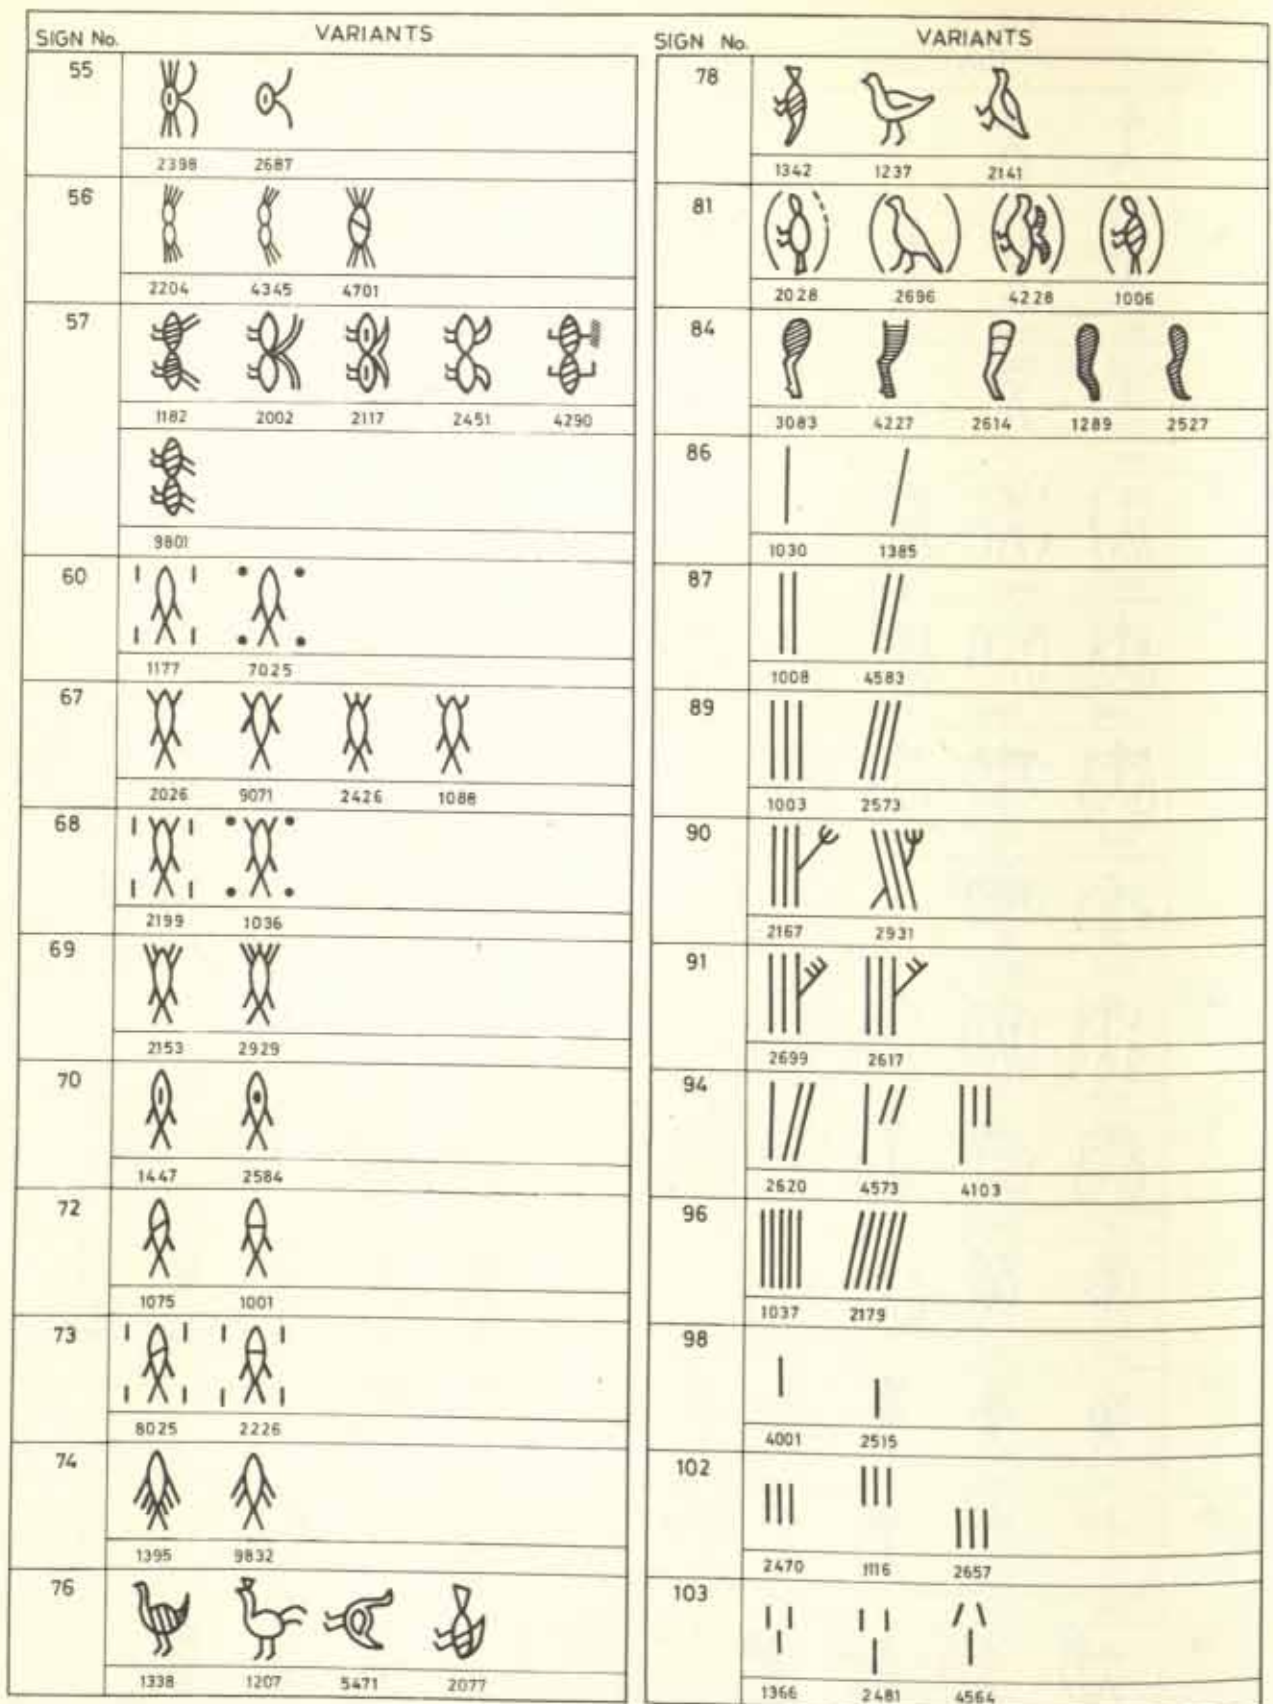 SIGN No. VARIANTS
55
2398 2687
56
2204 4345 4701
57
1182 2002 2117 2451 4290
9801
60
1177 7025
67
2026 9071 2426 1088
68
2199 1036
69
2153 2929
70
1447 2584
72
1075 1001
73
8025 2226
74
1395 9832
76
1338 1207 5471 2077
SIGN No. VARIANTS
78
1342 1237 2141
81
2028 2696 4228 1006
84
3083 4227 2614 1289 2527
86
1030 1385
87
1008 4583
89
1003 2573
90
2167 2931
91
2699 2617
94
2620 4573 4103
96
1037 2179
98
4001 2515
102
2470 1116 2657
103
1366 2481 4564